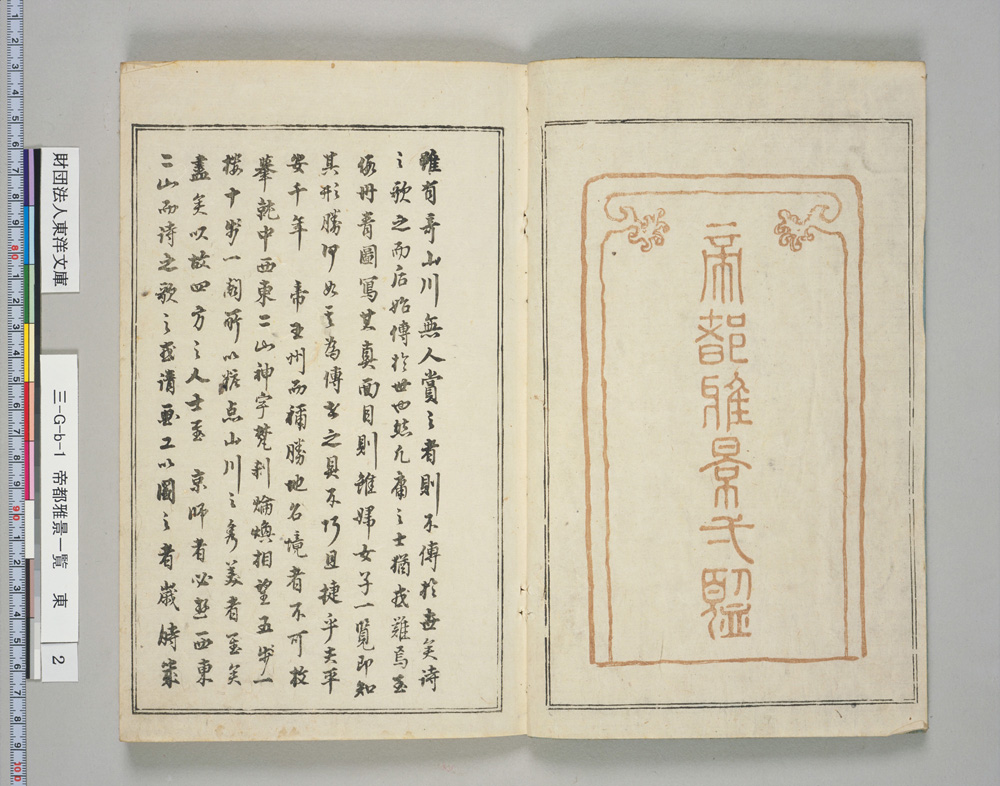 帝都雅景一覧
雖有奇山川無人賞之者則不傳於世矣詩
之歌之而后始傳於世也然凡庸之士猶或難焉至
如丹青圖寫其真面目則雖婦女子一覧即知
其形勝何如之為傳者之具不巧且捷乎夫平
安千年 帝王州而稱勝地名境者不可枚
舉就中西東二山神宇梵刹輪煥相望五歩一
樓十歩一閣所以粧点山川之秀美者至矣
盡矣以故四方之人士至 京師者必遊西東
二山而詩之歌之或請画工以圖之者歳時
財団法人東洋文庫
三-G-b-1 帝都雅景一覧 東
2